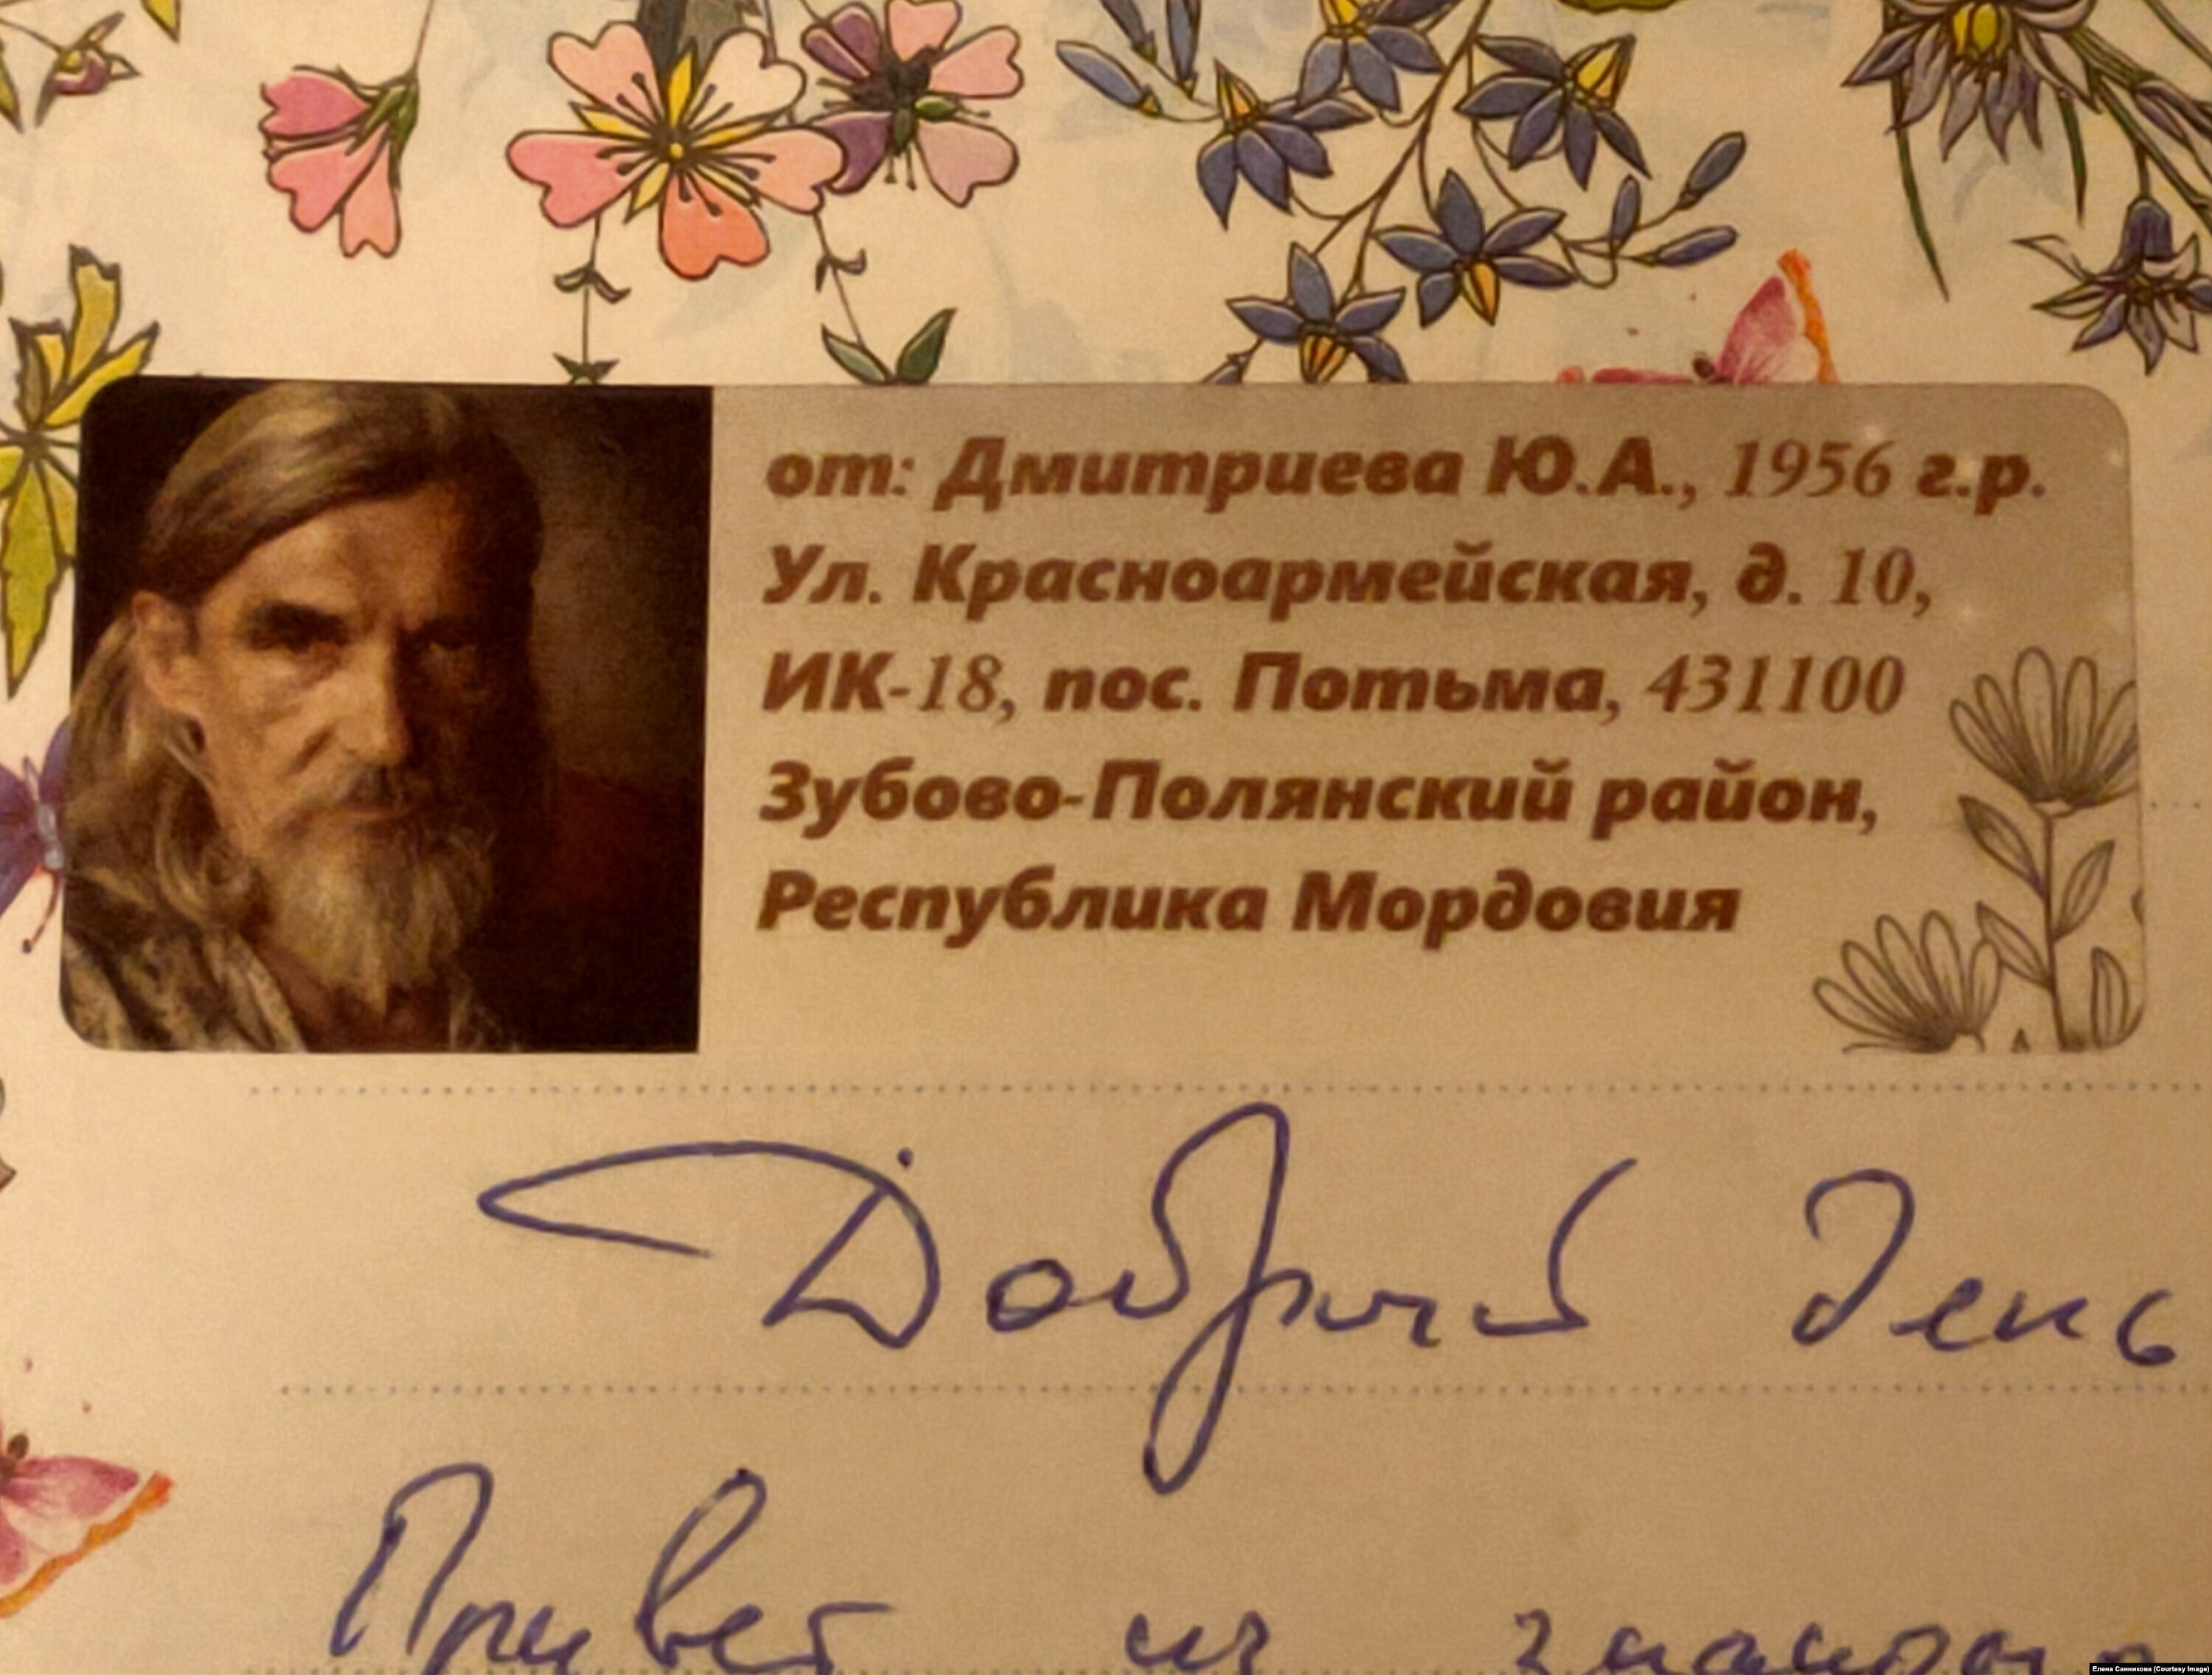 от: Дмитриева Ю.А., 1956 г.р.
Ул. Красноармейская, д. 10,
ИК-18, пос. Потьма, 431100
Зубово-Полянский район,
Республика Мордовия
Добрый день
Привет из
Елена Санникова (Courtesy Image)